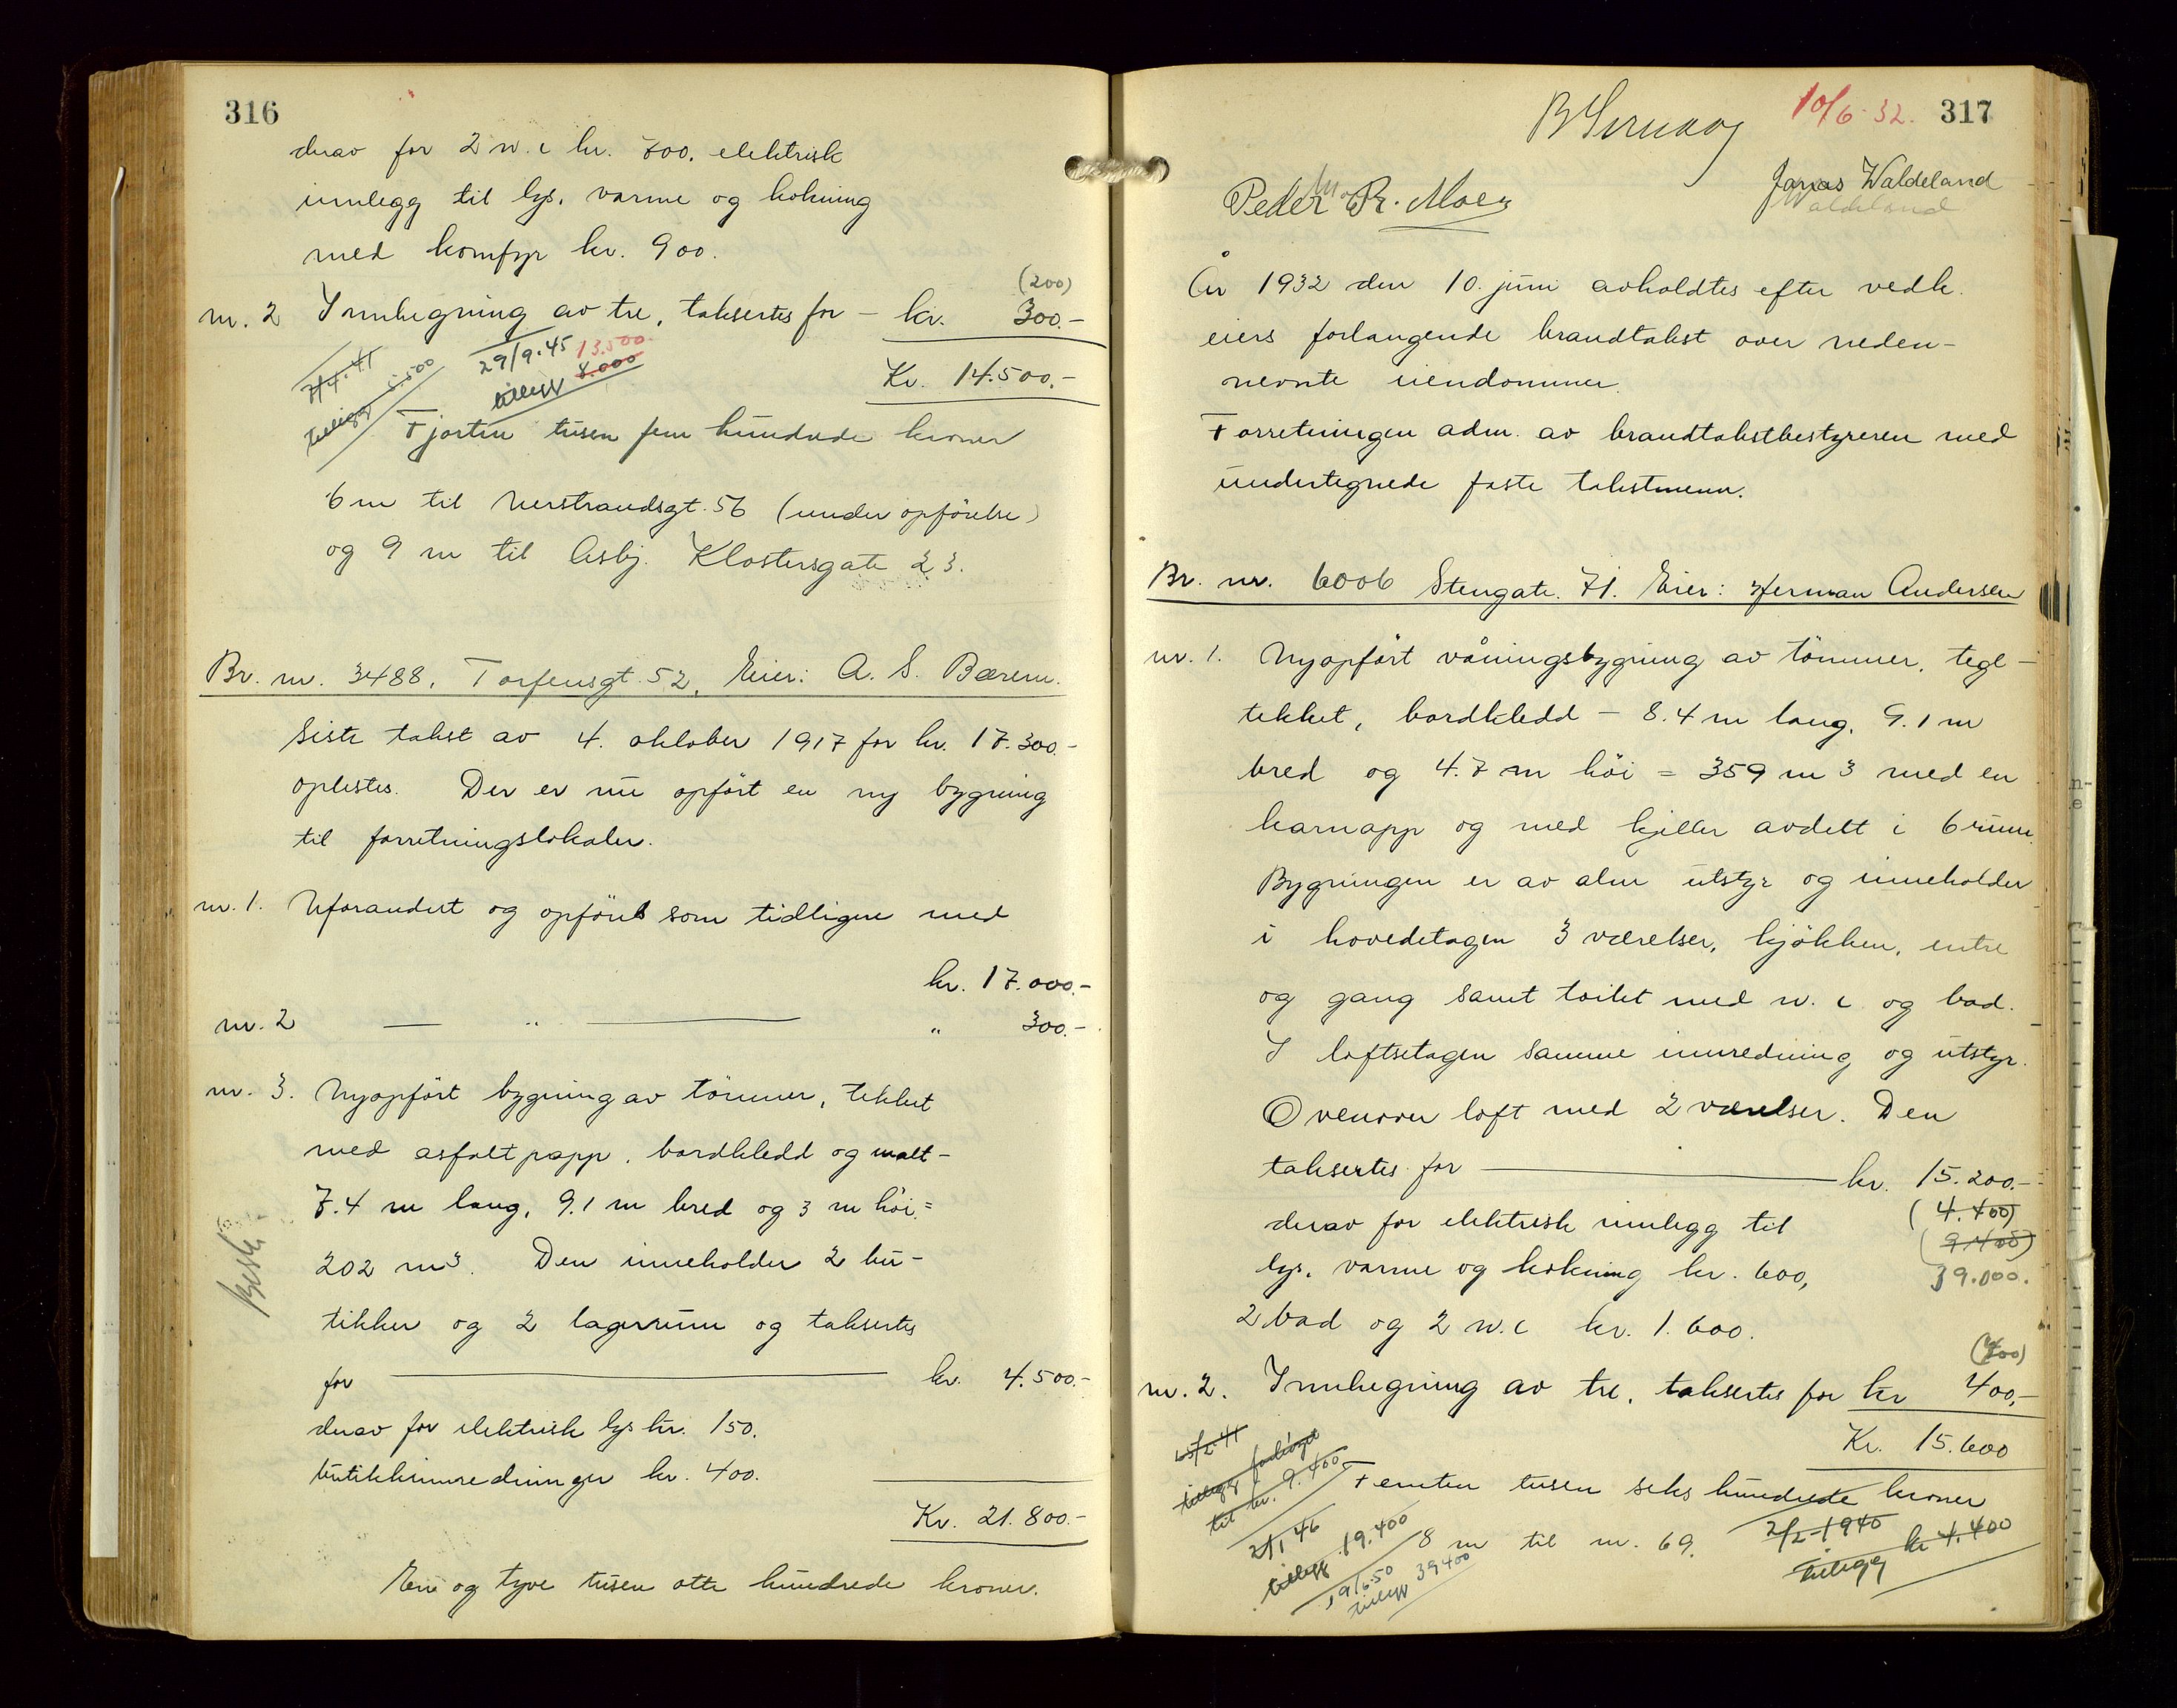 316
derav for 2 w.c kr. 700, elektrisk
innlegg til lys, varme og kokning
med komfyr kr. 900.
(200)
nr. 2 Innhegning av tre, taksertes for – kr. 300.-
7/4.41 tillegg 5.500
29/9.45 13.500
tillegg 8.000
Kr. 14.500.-
Fjorten tusen fem hundrede kroner
6 m til Nerstrandsgt. 56 (under opförelse)
og 9 m til Asbj. Klostersgate 23.
Br. nr. 3488, Torfeusgt. 52, Eier: A. S. Bærem.
Siste takst av 4. oktober 1917 for kr. 17.300.-
oplestes. Der er nu opfört en ny bygning
til forretningslokaler.
nr. 1. Uforandert og opföres som tidligere med
kr. 17.000.-
nr. 2 — " — " 300.-
nr. 3. Nyopfört bygning av tömmer, tekket
med asfaltpapp, bordkledd og malt –
7.4 m lang, 9.1 m bred og 3 m höi =
202 m3. Den inneholder 2 bu-
tikker og 2 lagerrum og taksertes
for — kr. 4.500.-
derav for elektrisk lys kr. 150.
butikkinnredninger kr. 400.
Kr. 21.800.-
En og tyve tusen otte hundrede kroner.
10/6-32. 317
Peder Moe
Jonas Waldeland
Waldeland
År 1932 den 10. juni avholdtes efter vedk.
eiers forlangende brandtakst over neden-
nevnte eiendommer.
Forretningen adm. av brandtakstbestyreren med
undertegnede faste takstmenn.
Br. nr. 6006 Stengate. 71. Eier: Herman Andersen
nr. 1. Nyopfört våningsbygning av tömmer, tegl-
tekket, bordkledd – 8.4 m lang, 9.1 m
bred og 4.7 m höi = 359 m3 med en
karnapp og med kjeller avdelt i 6 rum.
Bygningen er av alm utstyr og inneholder
i hovedetagen 3 værelser, kjökken, entre
og gang samt toilet med w.c og bad.
I loftsetagen samme innredning og utstyr.
Ovenover loft med 2 værelser. Den
taksertes for — kr. 15.200.-
derav for elektrisk innlegg til (4.400)
(9.400)
lys, varme og kokning kr. 600, 39.000.
2 bad og 2 w.c kr. 1.600.
nr. 2. Innhegning av tre, taksertes for kr 400,-
Kr. 15.600
tillegg forhöget
til kr. 9.400
Femten tusen seks hundrede kroner
2/1 46
tillegg 19.400
8 m til nr. 69.
2/2-1940
tillegg kr 4.400
19/6.50
tillegg 39400